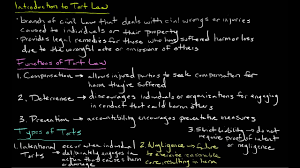 Introduction to Tort Law
• branch of civil law that deals with civil wrongs or injuries
caused to individuals or their property
• Provides legal remedies for those who have suffered harm or loss
due to the wrongful acts or omissions of others
Functions of Tort Law
1. Compensation → allows injured parties to seek compensation for
harm they suffered
2. Deterrence → discourages individuals or organizations for engaging
in conduct that could harm others
3. Prevention → accountability encourages preventative measures
Types of Torts
1. Intentional Torts → occur when individual deliberately engages in action that causes harm or damage
2. Negligence → failure to exercise reasonable care resulting in harm
3. Strict Liability → do not require proof of intent or negligence